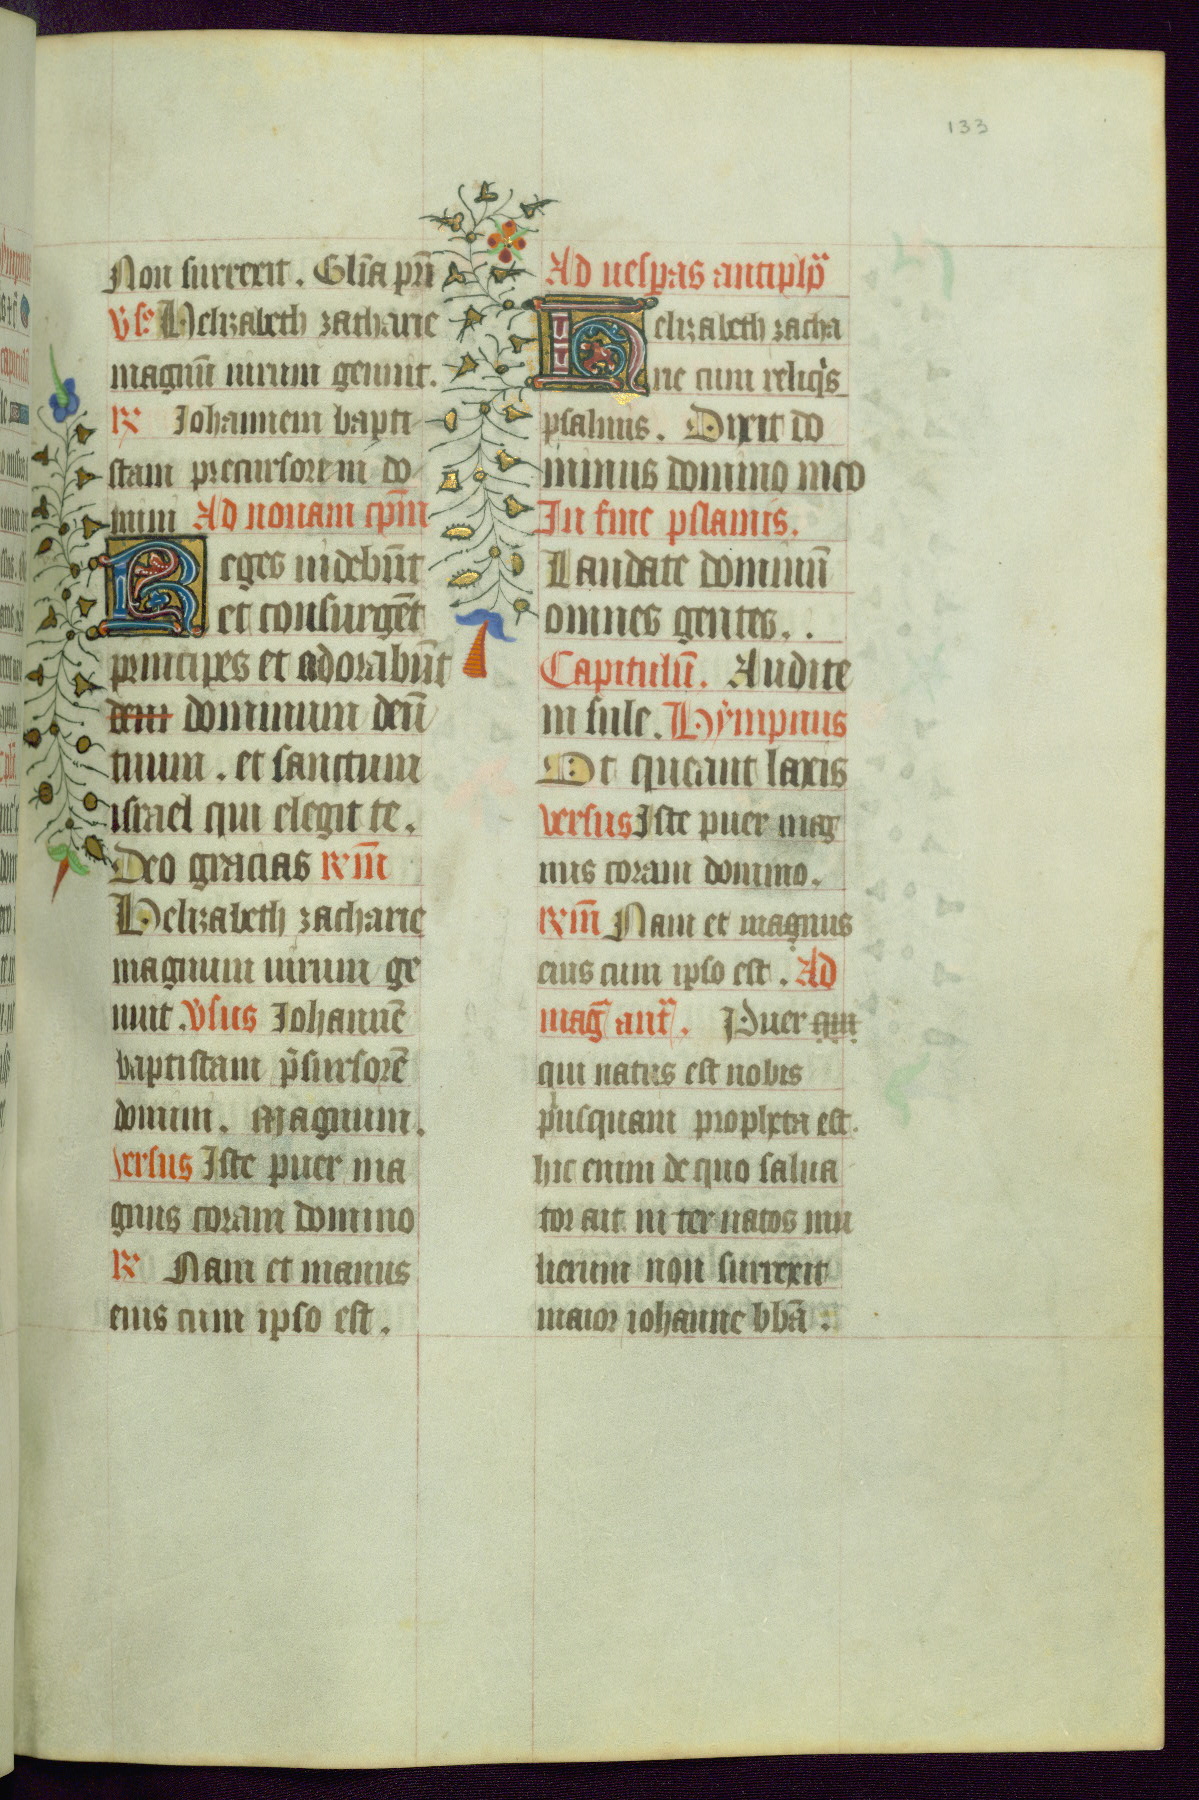 133
Non surrexit. Glīa pr̄i
v̄s. Helizabeth zacharie
magnū uirum genuit.
R Iohannem bapti
stam precursorem do
mini Ad nonam cp̄m
Reges uidebūt
et consurgēt
principes et adorabūt
dem dominum deū
tuum. et sanctum
israel qui elegit te.
Deo gracias Rm̄
Helizabeth zacharie
magnum uirum ge
nuit. v̄sus Iohannē
baptistam p̄sursorē
domini. Magnum.
versus Iste puer ma
gnus coram domino
R Nam et manus
eius cum ipso est.
Ad uesperas antiph̄
Helizabeth zacha
rie cum reliqis
psalmis. Dixit do
minus domino meo
In fine pslamis.
Laudate dominū
omnes gentes..
Capitulū. Audite
insule. Hympnus
Ut queant laxis
versus Iste puer mag
nus coram domino.
Rm̄ Nam et magnus
eius cum ipso est. Ad
maḡ ant̄. Puer qui
qui natus est nobis
plusquam propheta est.
hic enim de quo salua
tor ait inter natos mu
lierum non surrexit
maior iohanne bb̄a.